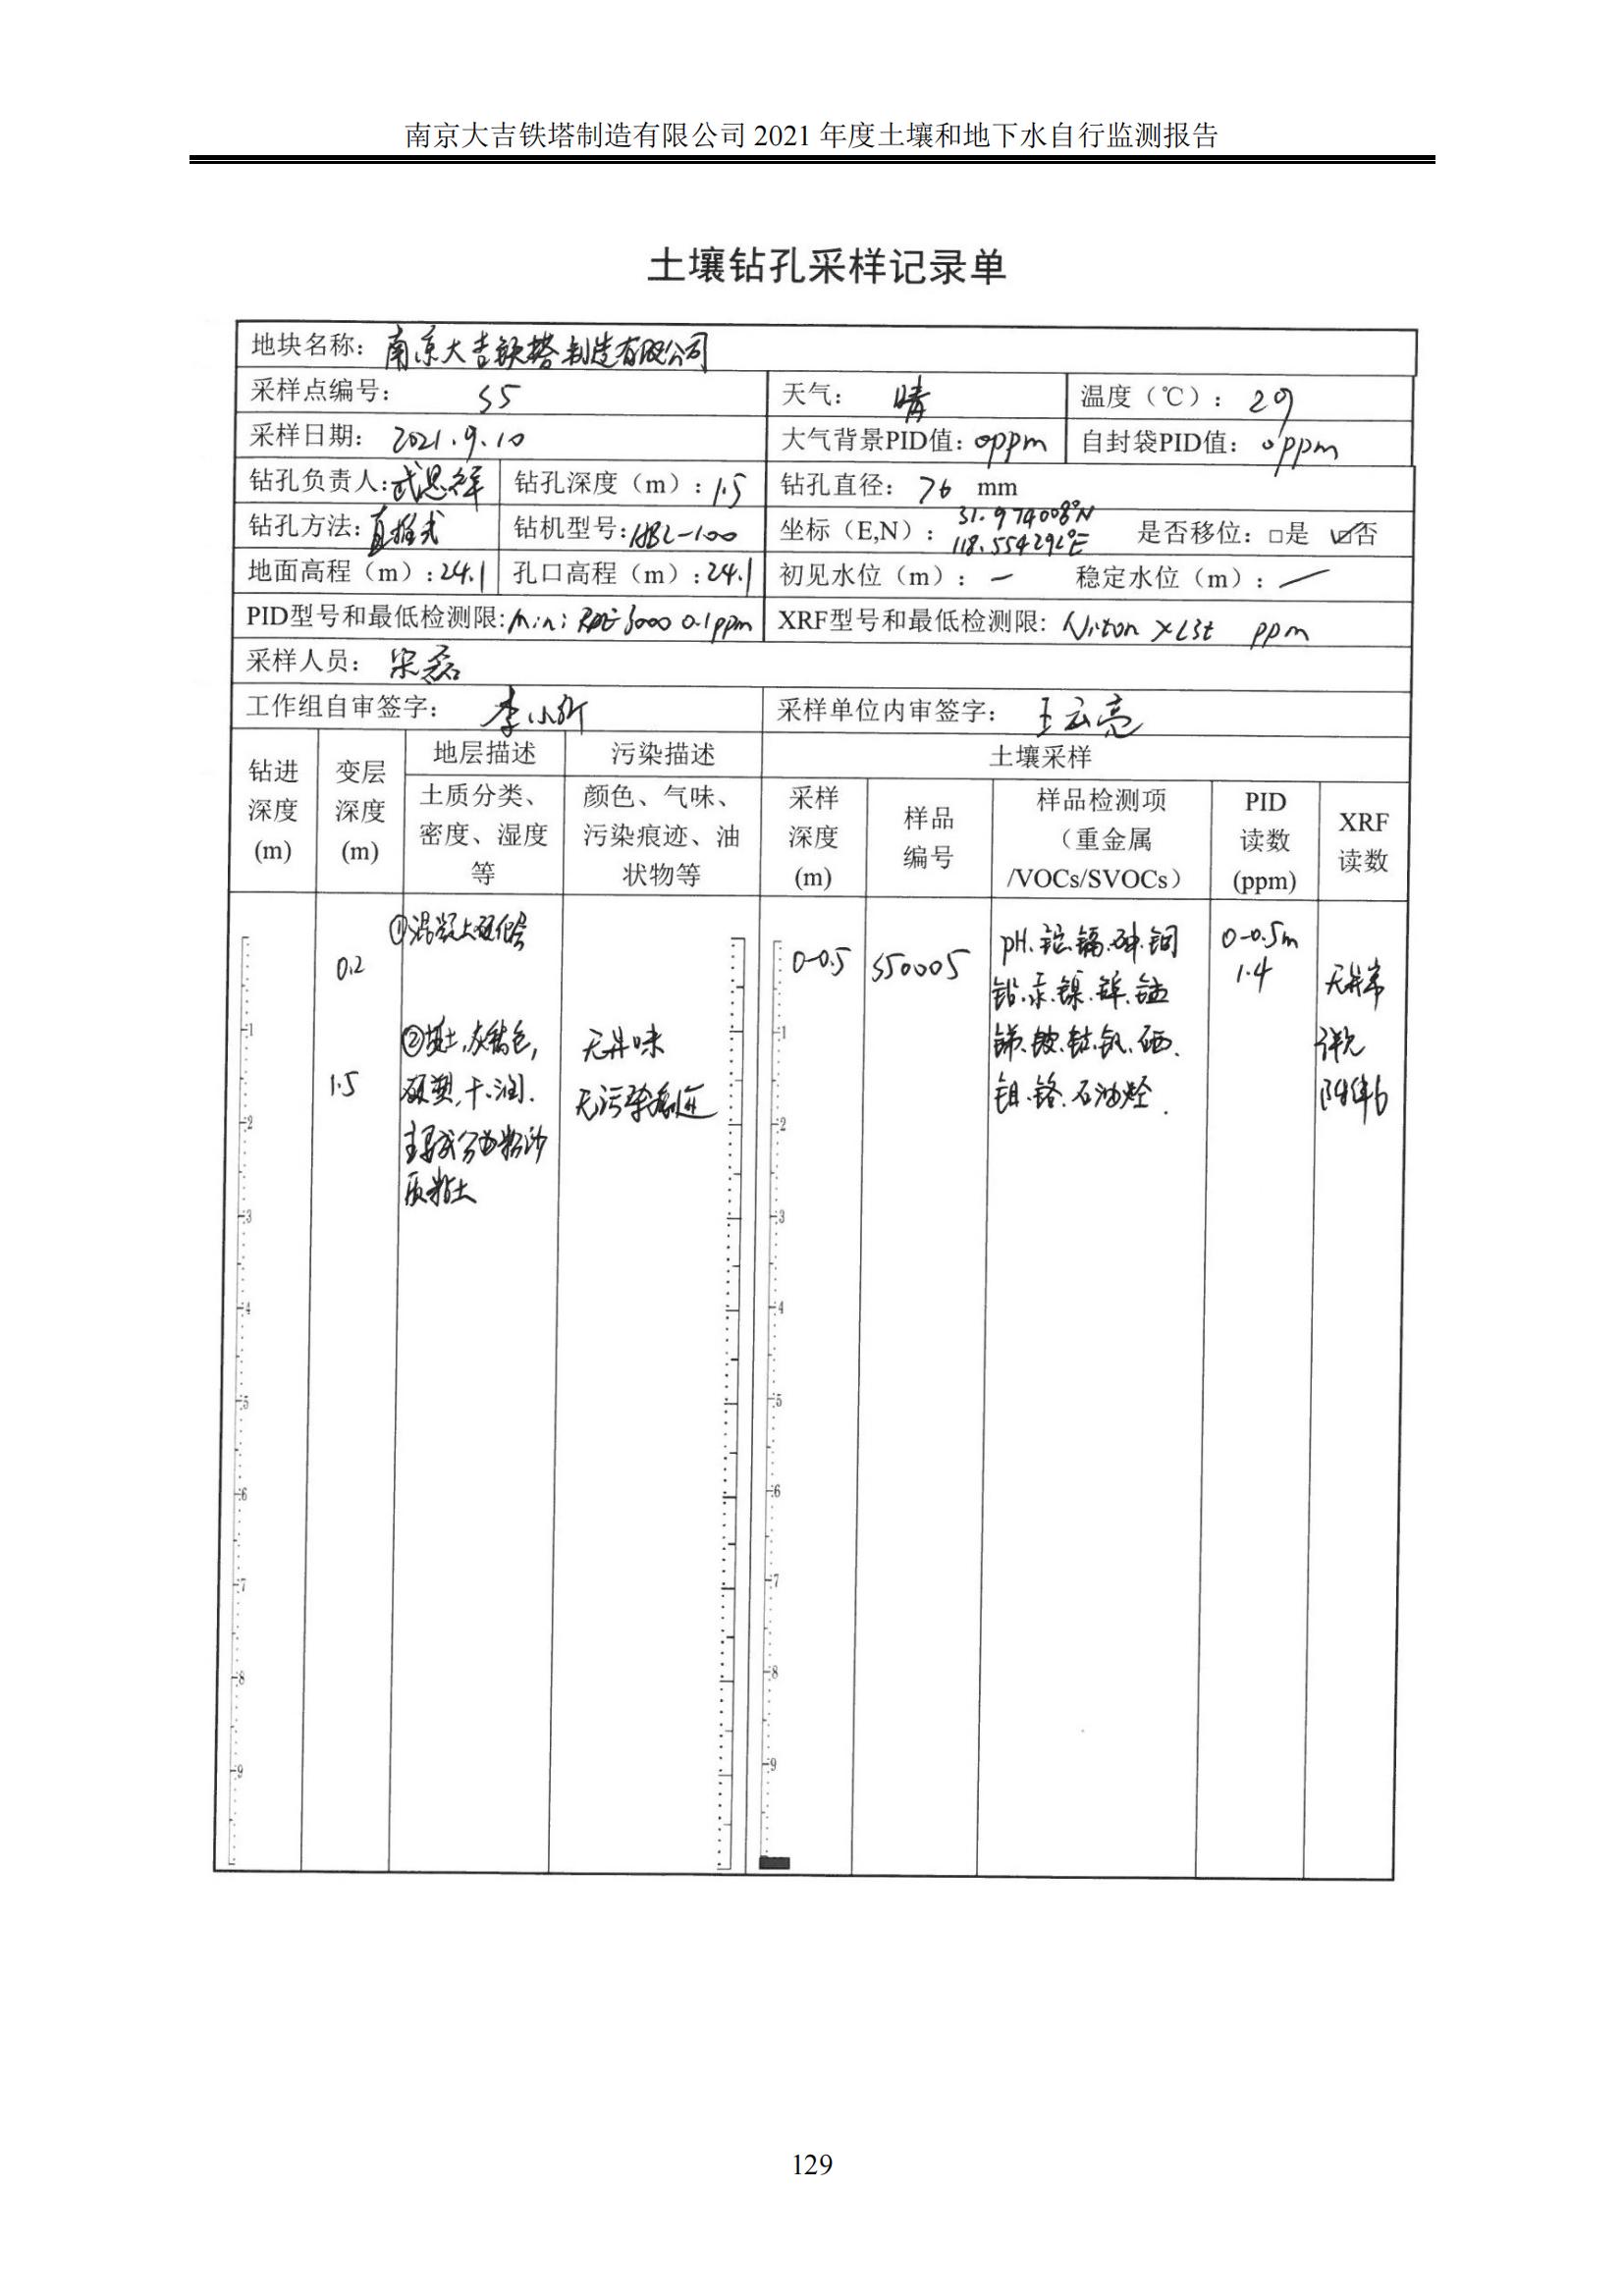 南京大吉铁塔制造有限公司 2021 年度土壤和地下水自行监测报告
土壤钻孔采样记录单
地块名称：南京大吉铁塔制造有限公司
采样点编号： S5 天气： 晴 温度（℃）： 29
采样日期： 2021.9.10 大气背景PID值：0ppm 自封袋PID值：0ppm
钻孔负责人：武恩祥 钻孔深度（m）：1.5 钻孔直径： 76 mm
钻孔方法：直推式 钻机型号：HBL-100 坐标（E,N）： 31.974008°N 118.554292°E 是否移位：□是 ☑否
地面高程（m）：24.1 孔口高程（m）：24.1 初见水位（m）：— 稳定水位（m）：—
PID型号和最低检测限：Mini RAE 3000 0.1ppm XRF型号和最低检测限: Niton XL3t ppm
采样人员： 宋磊
工作组自审签字： 李小 采样单位内审签字： 王云亮
钻进深度(m) 变层深度(m) 地层描述 污染描述 土壤采样
土质分类、密度、湿度等 颜色、气味、污染痕迹、油状物等 采样深度(m) 样品编号 样品检测项（重金属/VOCs/SVOCs） PID读数(ppm) XRF读数
0.2 ①混凝土硬化层
1.5 ②填土,灰褐色,
硬塑,干.润.
主要成分为粉沙
质粘土
无异味
无污染痕迹
0-0.5 S50005
pH.铊.镉.砷.铜
铅.汞.镍.锌.锰
锑.铍.钴.钒.硒.
钼.铬.石油烃.
0-0.5m
1.4
无异常
详见
附件6
1
2
3
4
5
6
7
8
9
1
2
3
4
5
6
7
8
9
129